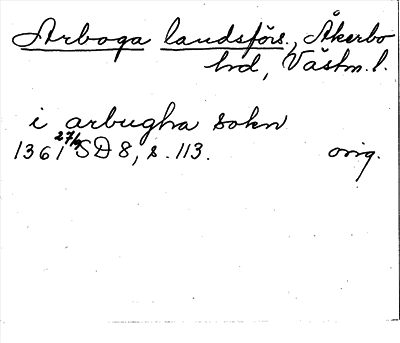 Arboga landsförs., Åkerbo
hd, Västm.l.
i arbugha sokn
1361 27/9 SD 8, s. 113. orig.